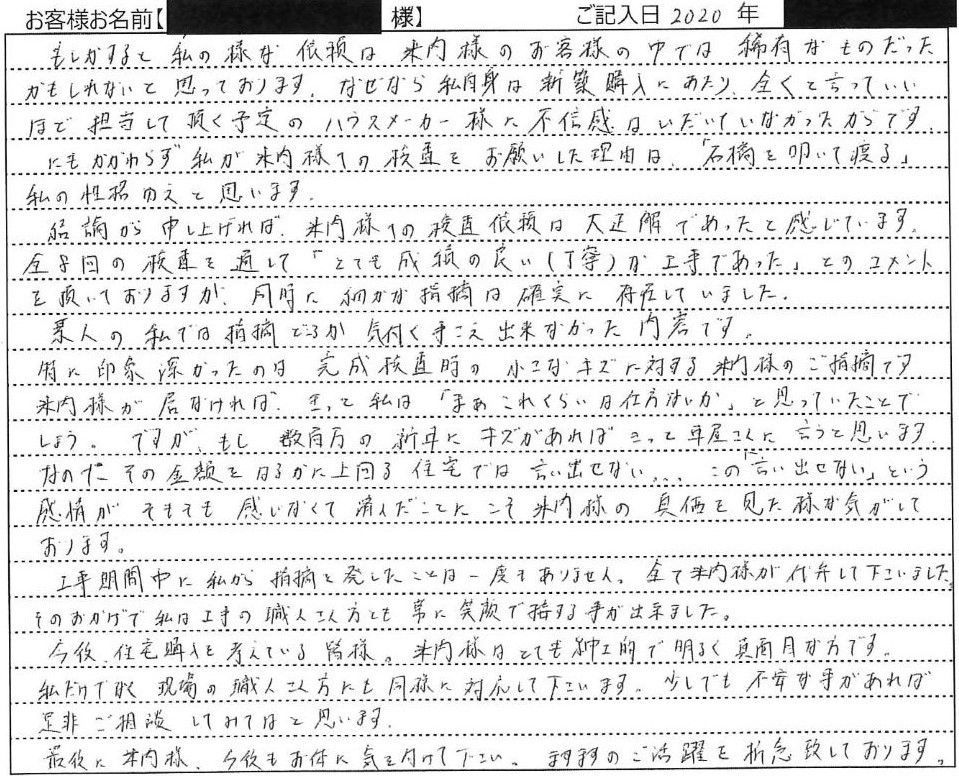 お客様お名前【 様】 ご記入日 2020 年
もしかすると 私の様な 依頼は 米内様のお客様の中では 稀有なものだった
かもしれないと 思っております。なぜなら 私自身は 新築購入にあたり、全くと言っていい
ほど 担当して頂く予定の ハウスメーカー様に 不信感はいだいていなかったからです。
にもかかわらず 私が 米内様への検査を お願いした理由は、「石橋を叩いて渡る」
私の性格ゆえと思います。
結論から申し上げれば、米内様への検査依頼は 大正解であったと感じています。
全8回の検査を通して「とても成績の良い(丁寧)な工事であった」とのコメント
を頂いておりますが、同時に細かな指摘は 確実に 存在していました。
素人の私では指摘どころか 気付く事さえ 出来なかった 内容です。
特に印象深かったのは 完成検査時の 小さなキズに対する 米内様のご指摘です
米内様が居なければ、きっと私は「まあ これくらいは仕方ないか」と思っていたことで
しょう。ですが、もし 数百万の新車に キズがあれば きっと車屋さんに 言うと思います。
なのに その金額を はるかに上回る 住宅では 言い出せない... この「言い出せない」という
感情が そもそも 感じなくて 済んだことに こそ 米内様の 真価を見た様な気がして
おります。
工事期間中に 私から 指摘を発したことは一度もありません。全て米内様が代弁して下さいました。
そのおかげで 私は工事の職人さん方とも 常に笑顔で接する事が出来ました。
今後、住宅購入を考えている皆様。米内様はとても紳士的で明るく真面目な方です。
私だけでなく 現場の職人さん方にも 同様に対応して下さいます。少しでも不安な事があれば
是非ご相談してみてはと思います。
最後に 米内様、今後もお体に気を付けて下さい。ますますのご活躍を祈念致しております。